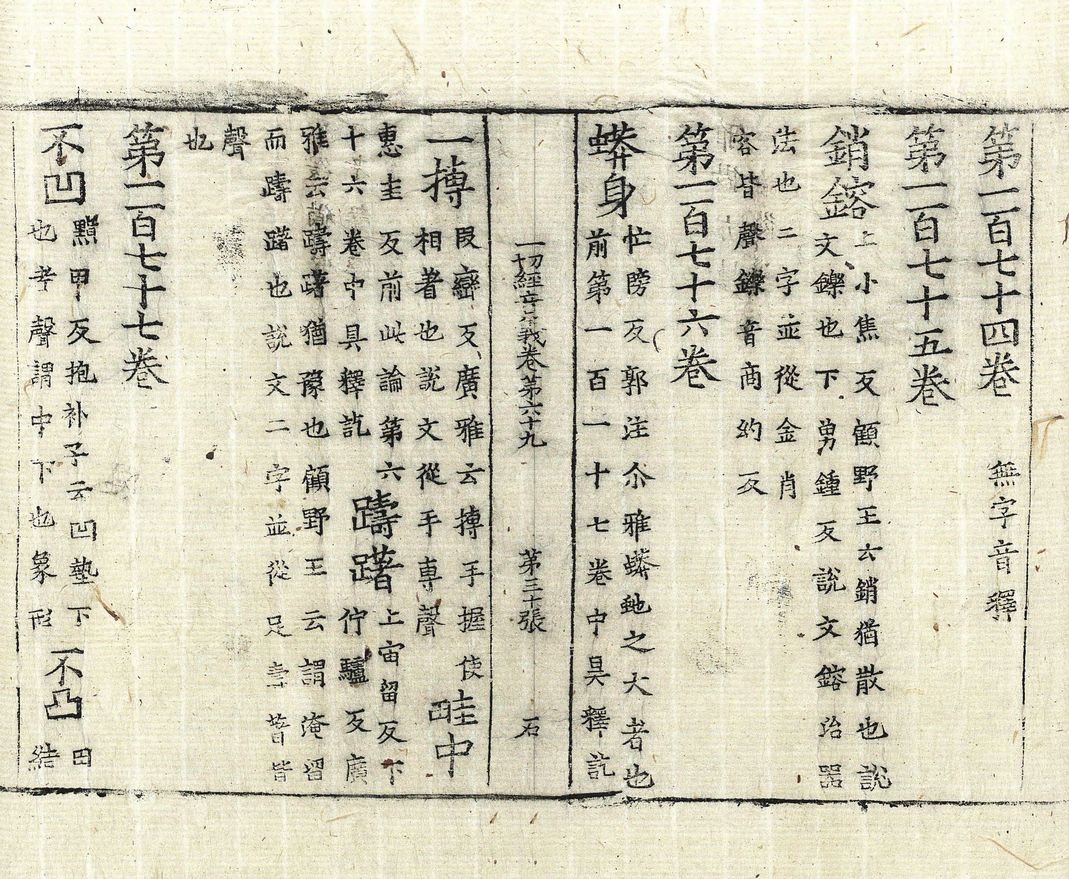 第一百七十四卷 無字音釋
第一百七十五卷
銷鎔 上小焦反顧野王云銷猶散也說
文鑠也下勇鍾反說文鎔冶器
法也二字並從金肖
容皆聲鑠音商約反
第一百七十六卷
蟒身 忙牓反郭注尒雅蟒虵之大者也
前第一百一十七卷中具釋訖
一切經音義卷第六十九 第三十張 石
一摶 段巒反廣雅云摶手握使
相著也說文從手專聲 畦中
惠圭反前此論第六
十六卷中具釋訖 躊躇 上宙留反下
佇驢反廣
雅云躊躇猶豫也顧野王云謂淹留
而躊躇也說文二字並從足壽著皆
聲
也
第一百七十七卷
不凹 黯甲反抱补子云凹墊下
也考聲謂中下也象形 不凸 田
結